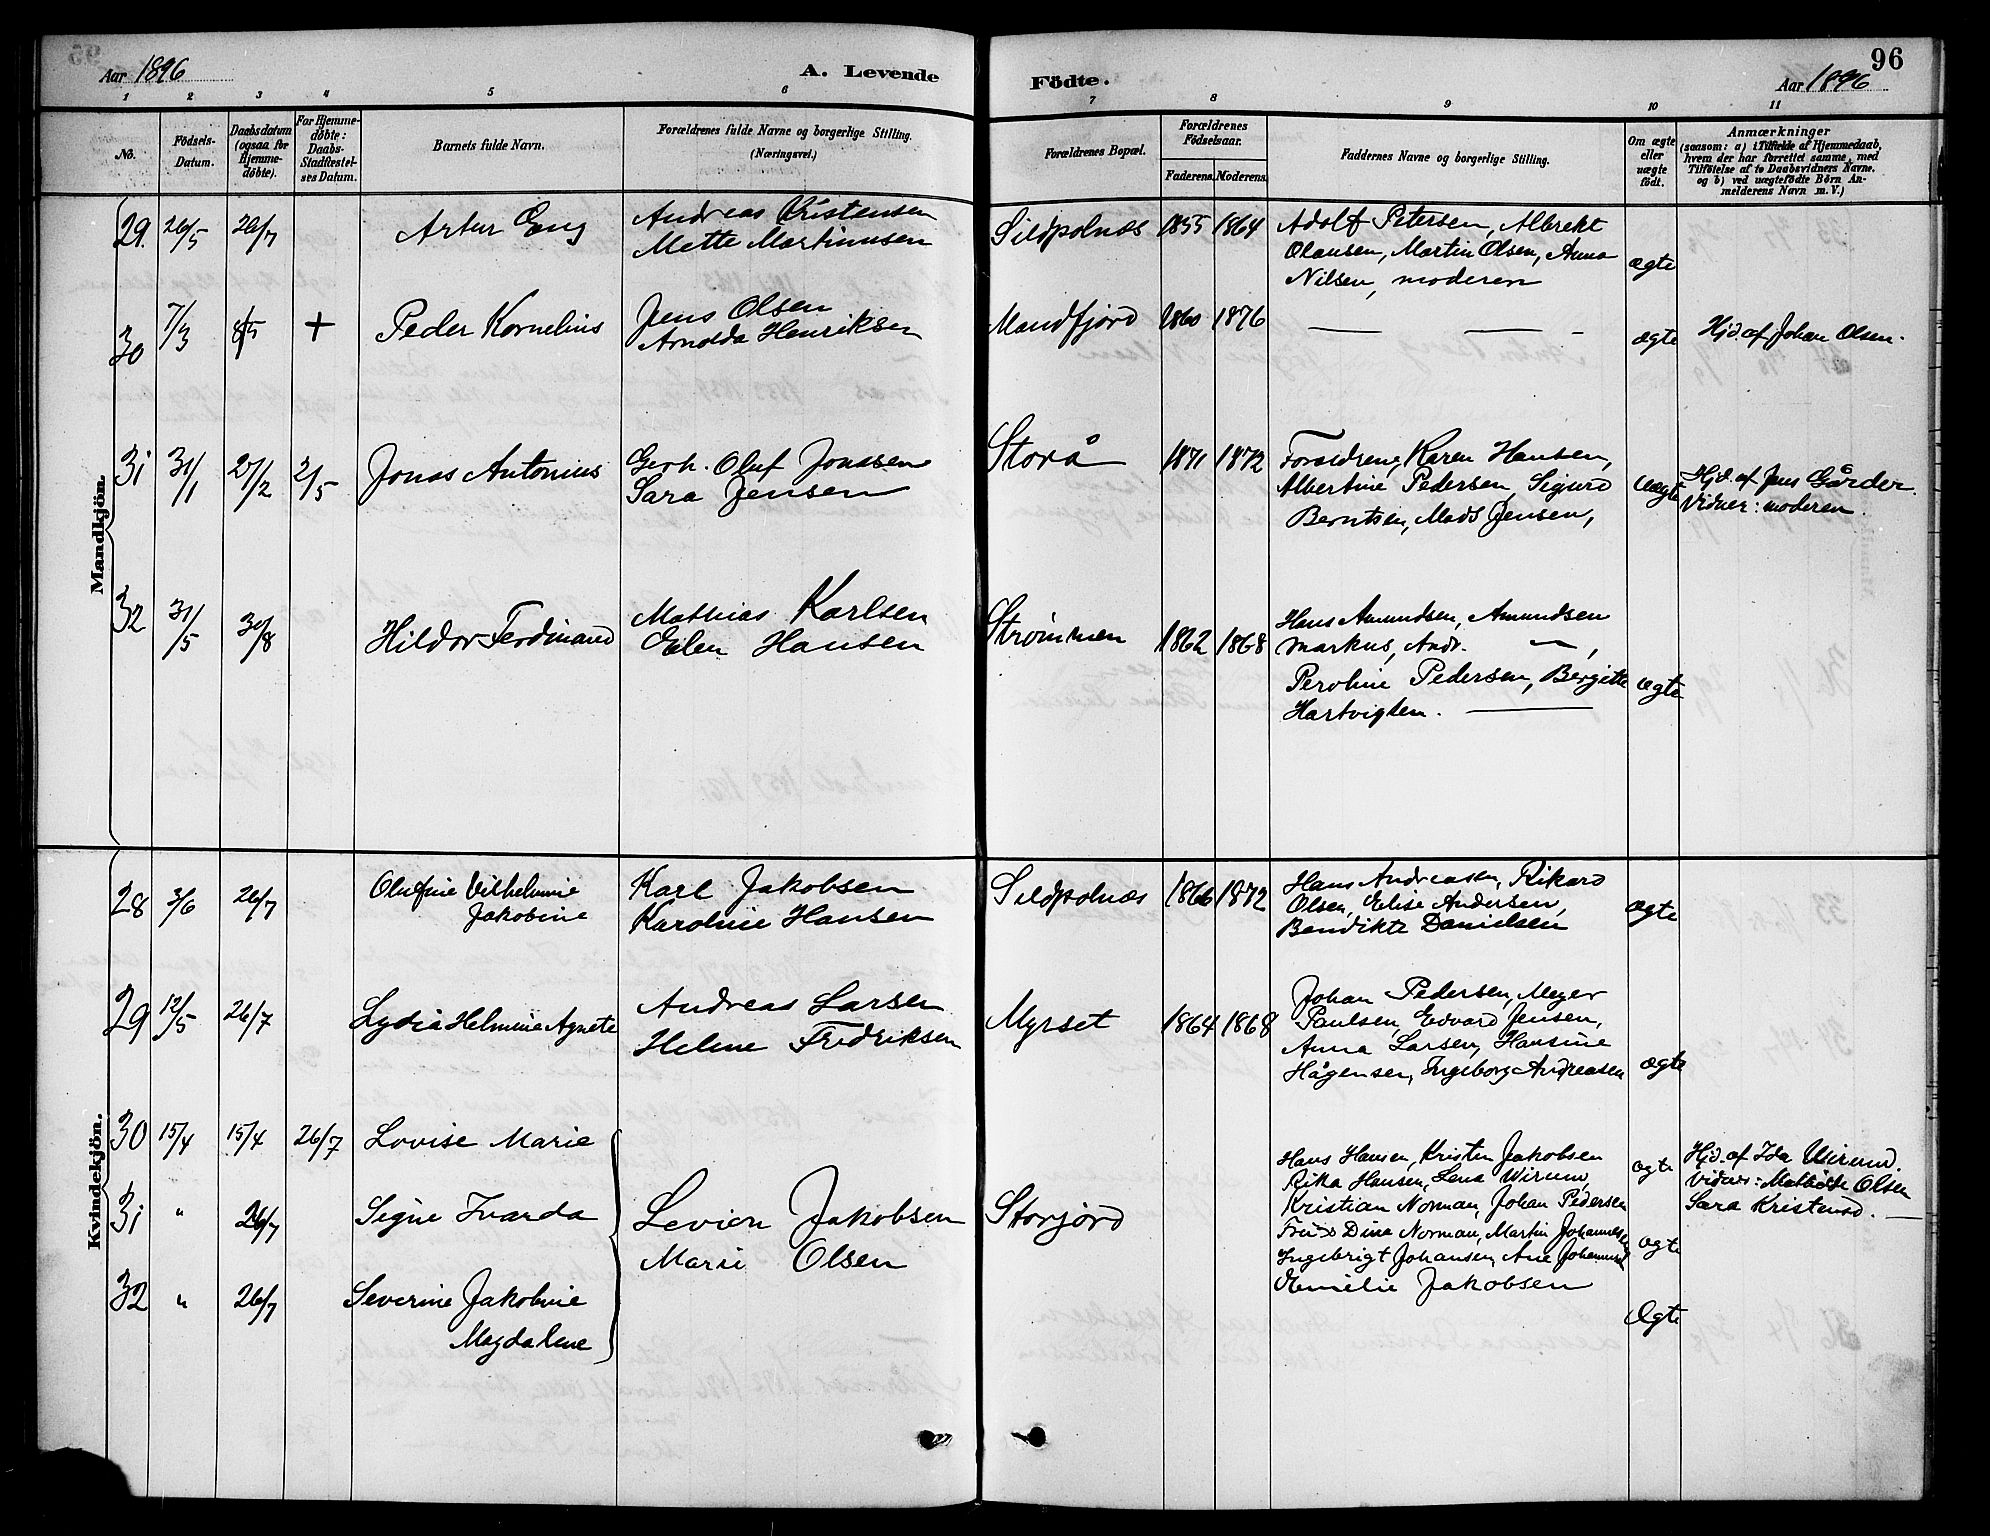 96
Aar 1896
A. Levende Födte.
Aar 1896
1 2 3 4 5 6 7 8 9 10 11
No.
Födsels-Datum.
Daabsdatum (ogsaa for Hjemme-döbte).
For Hjemme-döbte: Daabs-Stadfæstel-ses Datum.
Barnets fulde Navn.
Forældrenes fulde Navne og borgerlige Stilling. (Næringsvei.)
Forældrenes Bopæl.
Forældrenes Födselsaar.
Faderens. Moderens.
Faddernes Navne og borgerlige Stilling.
Om ægte eller uægte födt.
Anmærkninger
(saasom: a) i Tilfælde af Hjemmedaab,
hvem der har forrettet samme, med
Tilföielse af to Daabsvidners Navne.
og b) ved uægtefödte Börn An-
melderens Navn m. V.)
Mandkjön.
29. 26/5 26/7 Artur Eng
Andreas Kristensen
Mette Martinusen
Sildpolnes 1855 1864
Adolf Petersen, Albrekt
Olausen, Martin Olsen, Anna
Nilsen, moderen
ægte
30 7/3 8/5 + Peder Kornelius
Jens Olsen
Arnolda Henriksen
Mandfjord 1860 1876
— — -
ægte
Hjd. af Johan Olsen.
31 31/1 27/2 2/5 Jonas Antonius
Gerh. Oluf Jonssen
Sara Jensen
Storå 1871 1872
Forældrene, Karen Hansen,
Albertine Pedersen, Sigurd
Berntsen, Mads Jensen,
uægte
Hjd. af Jens Gårder.
Vidner: moderen
32 31/5 30/8 Hildor Ferdinand
Mathias Karlsen
Elen Hansen
Strömmen 1862 1868
Hans Amundsen, Amundsen
Markus, Andr. — ,
Peroline Pedersen, Bergitte
Hartvigsen. —
ægte
Kvindekjön.
28 3/6 26/7 Olufine Vilhelmine
Jakobine
Karl Jakobsen
Karoline Hansen
Sildpolnes 1866 1872
Hans Andreasen, Rikard
Olsen, Elise Andersen,
Bendikte Danielsen
ægte
29 12/5 26/7 Lydia Helmine Agnete
Andreas Larsen
Helene Fredriksen
Myrset 1864 1868
Johan Pedersen, Meyer
Paulsen, Edvard Jensen,
Anna Larsen, Hansine
Hågensen, Ingeborg Andreasen
ægte
30 15/4 15/4 26/7 Lovise Marie
31 " 26/7 Signe Ivarda
32 " 26/7 Severine Jakobine
Magdalene
Levion Jakobsen
Marie Olsen
Storjord
Hans Hansen, Kristen Jakobsen
Rika Hansen, Lena Wirum,
Kristian Norman, Johan Pedersen
Dina Norman, Martin Johannesen
Ingebrigt Johansen, Ane
Emelie Jakobsen
ægte
ægte
Ægte
Hjd. af Ida Wirum.
Vidner: Olsen
Sara Kristensd. —